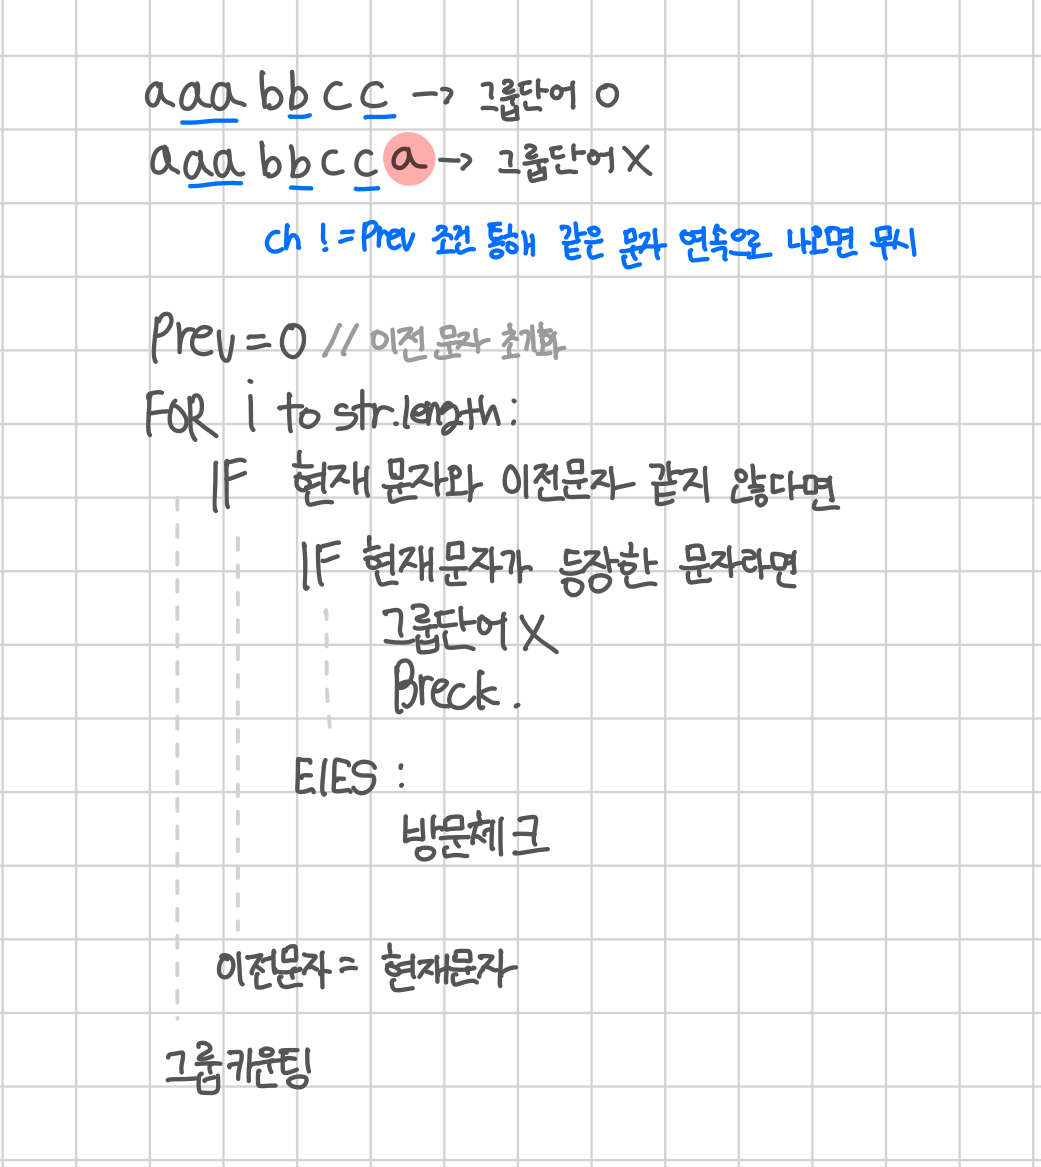 aaabbcc → 그룹단어 O
aaabbcca → 그룹단어 X
ch != Prev 조건 통해 같은 문자 연속으로 나오면 무시
Prev = 0 // 이전 문자 초기화
FOR i to str.length:
IF 현재 문자와 이전문자 같지 않다면
IF 현재문자가 등장한 문자라면
그룹단어 X
Breck.
ElES :
방문체크
이전문자 = 현재문자
그룹카운팅